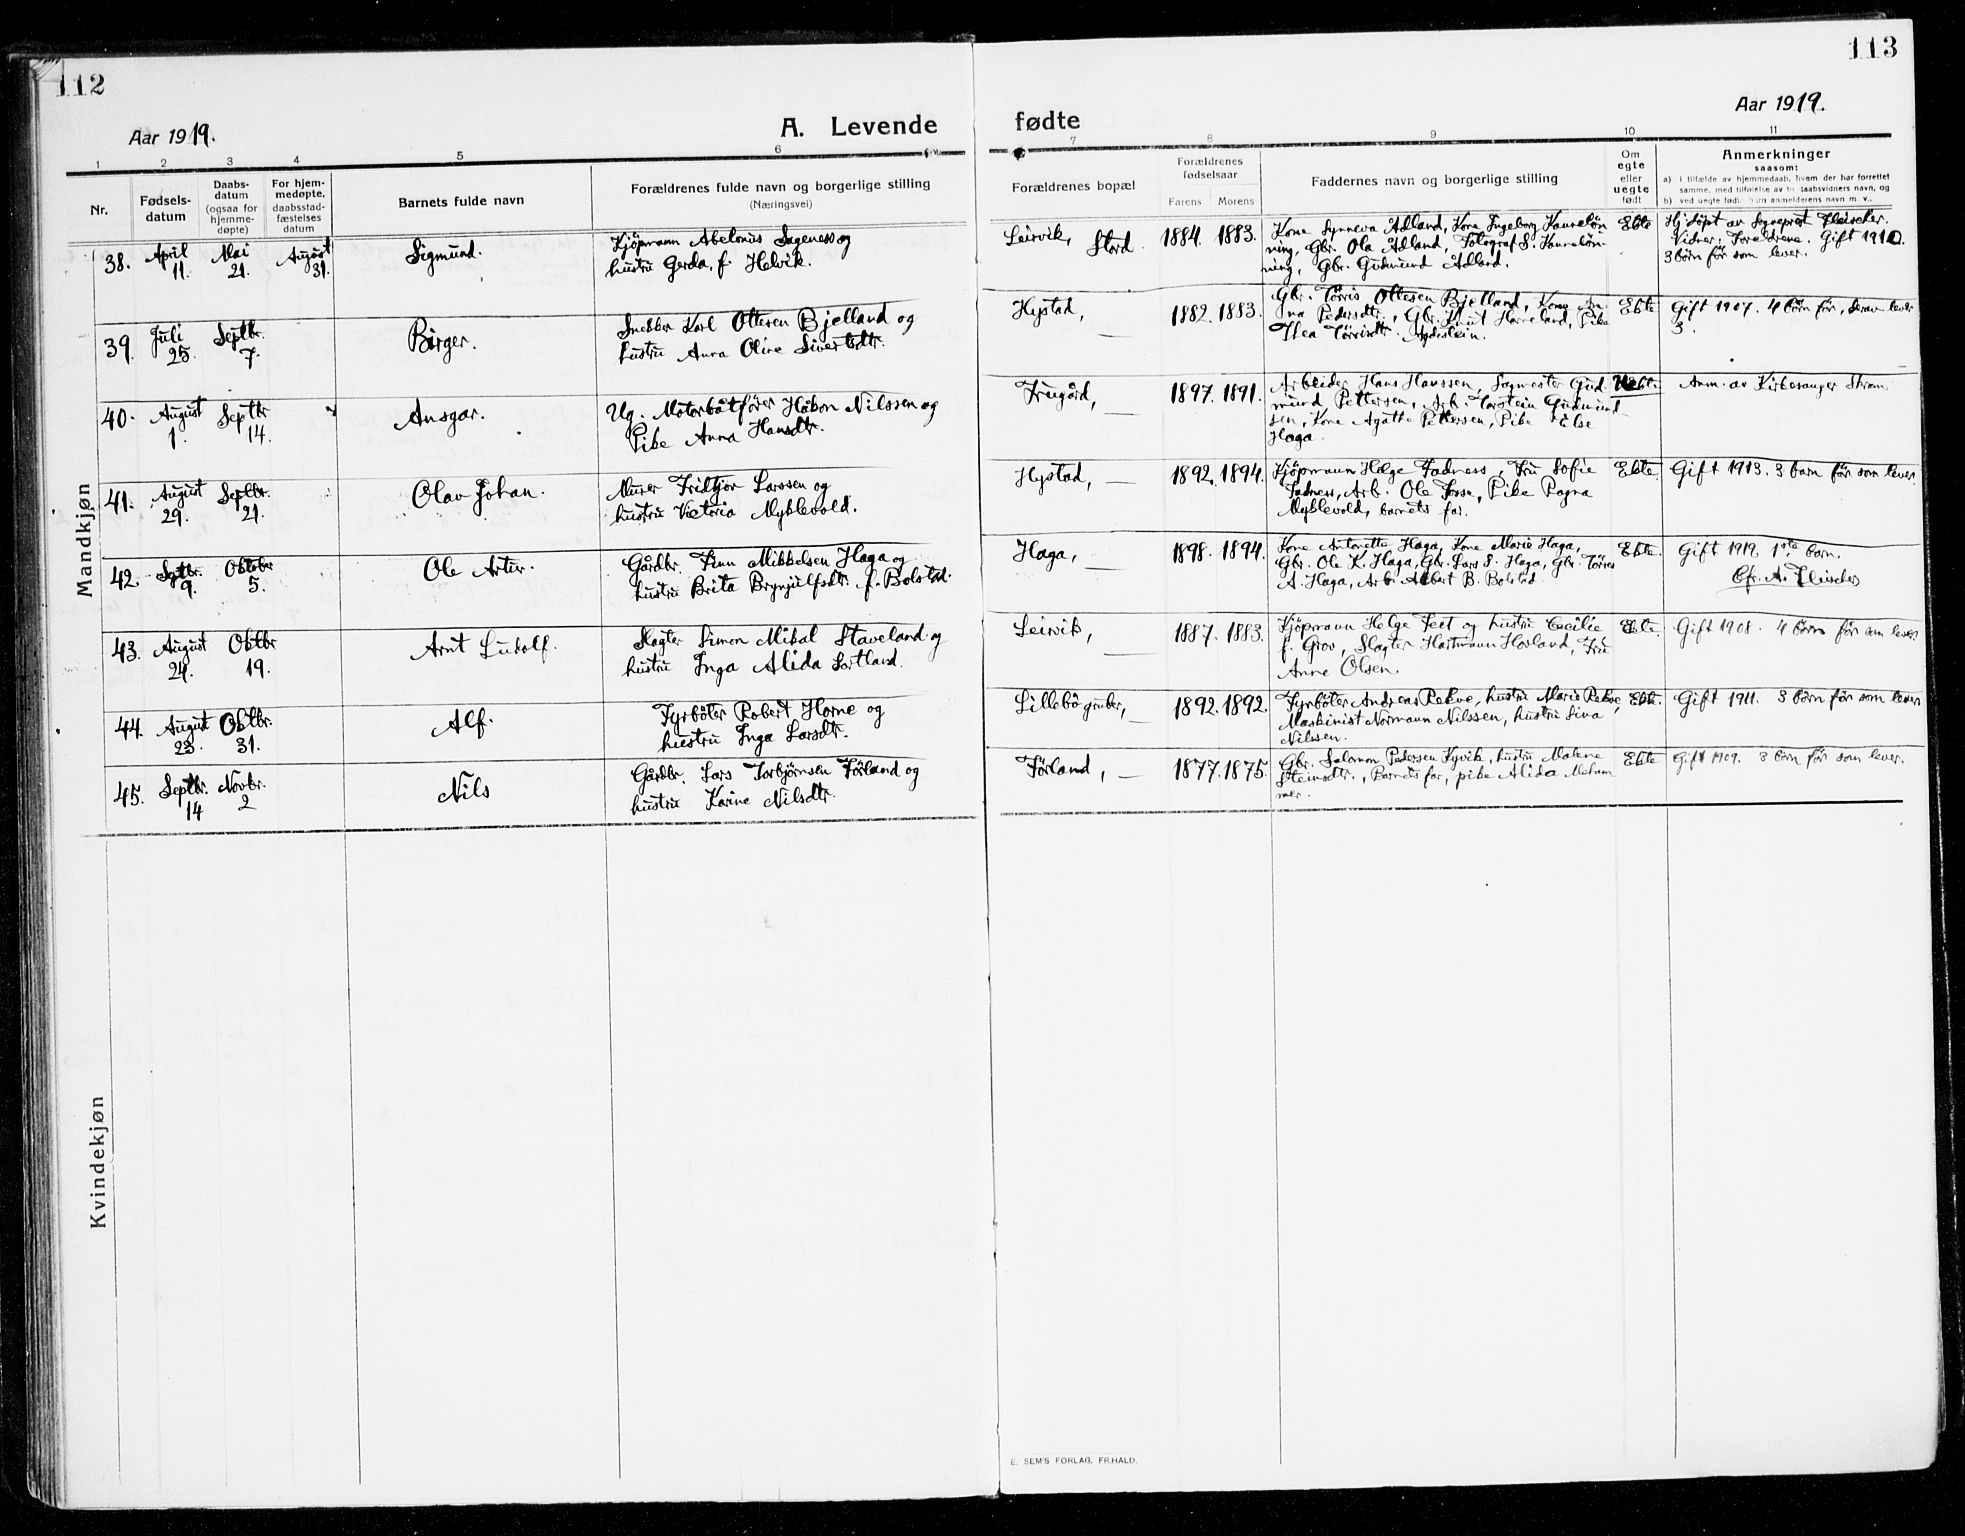 112
113
Aar 1919.
Aar 1919.
A. Levende
fødte
1 2 3 4 5 6
7 8 9 10 11
Nr.
Fødsels-
datum
Daabs-
datum
(ogsaa for
hjemme-
døpte)
For hjem-
medøpte,
daabsstad-
fæstelses
datum
Barnets fulde navn
Forældrenes fulde navn og borgerlige stilling
(Næringsvei)
Forældrenes bopæl
Forældrenes
fødselsaar
Farens Morens
Faddernes navn og borgerlige stilling
Om
egte
eller
uegte
født
Anmerkninger
saasom:
a) i tilfælde av hjemmedaab, hvem der har forrettet
samme, med tilføielse av to daabsvidners navn, og
b) ved uegte født
anmelderens navn m. v..
Mandkjøn
38. April
11. Mai
21. August
31. Sigmund. Kjöpmann Abelonus Sageness og
hustru Gerda, f. Helvik.
Leirvik, Stord. 1884. 1883. Kone Synneva Adland, Kone Ingeborg
ning, Gbr. Ola Adland, Fotograf S.
ning, Gbr. Gudmund Adland. Ekte Hj. döpt av Sogneprest Fleischer.
Vidner: Foreldrene. Gift 1910.
3 börn för som lever.
39. Juli
25. Septbr.
7. Birger. Snekker Karl Ottesen Bjelland og
hustru Anna Oline Sivertsdtr.
Hystad, — 1882. 1883. Gbr. Törris Ottesen Bjelland, Kone An-
na Pedersdtr., Gbr. Knut Horneland, Pike
Thea Törrisdtr. Ekte Gift 1907. 4 börn för, derav lever
3.
40. August
1. Septbr
14. Ansgar. Ug. Motorbåtförer Håkon Nilssen og
Pike Anna Hansdtr.
Frugård, — 1897. 1891. Arbeider Hans Hanssen, Sagmester Gud
mund Pettersen, Arb. Torstein Gudmund
sen, Kone Agathe Pettersen, Pike Else
Haga. Uekte. Anm. av Kirkesanger Strøm
41. August
29. Septbr.
21. Olav Johan. Murer Fridtjov Larssen og
hustru Victoria Myklevold.
Hystad, — 1892. 1894. Kjöpmann Helge Fadness, Fru Sofie
Fadness, Arb. Ole Fosse, Pike Ragna
Myklevold, barnets far. Ekte Gift 1913. 3 barn för som lever
42. Septbr.
9. Oktober
5. Ole Artur. Gårdbr. Finn Mikkelsen Haga og
hustru Brita Brynjulfsdtr. f. Bolstad.
Haga, — 1898. 1894. Kone Antonette Haga, Kone Marie Haga,
Gbr. Ole K. Haga, Gbr. Lars S. Haga, Gbr. Törres
A. Haga, Arb. Albert B. Bolstad. Ekte. Gift 1919. 1ste barn.
Cfr. A. Fleischer
43. August
24. Oktbr
19. Arnt Ludolf. Slagter Simon Mikal Staveland og
hustru Inga Alida Sortland.
Leirvik, — 1887. 1883. Kjöpmann Helge Feet og hustru Cecilie
f. Grov, Slagter Hartmann Hovland, Fru
Anne Olsen. Ekte. Gift 1908. 4 börn för som lever
44. August
23. Oktbr.
31. Alf. Fyrböter Robert Horne og
hustru Inga Larsdtr.
Lillebö gruber, — 1892. 1892. Fyrböter Andreas Rekve, hustru Marie Rekve,
Maskinist Normann Nilssen, hustru Sina
Nilssen. Ekte. Gift 1911. 3 börn för som lever
45. Septbr.
14 Novbr.
2 Nils Gårdbr. Lars Torbjörnsen Förland og
hustru Karine Nilsdtr.
Förland, — 1877. 1875. Gbr. Salomon Pedersen Kyvik, hustru Malene
Steinsdtr., Barnets far, pike Alida
mer. Ekte Gift 1909. 3 börn för som lever.
Kvindekjøn
E. SEM'S FORLAG, FR.HALD.